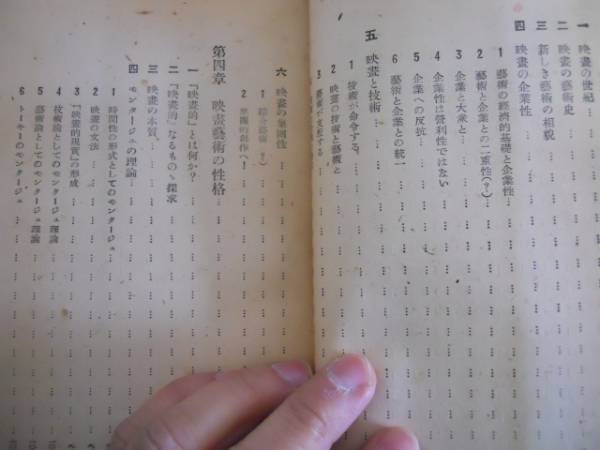 一 映畫の世紀
二 映畫の藝術史
三 新しき藝術の相貌
四 映畫の企業性
1 藝術の經濟的基礎と企業性
2 藝術と企業との二重性(?)
3 企業と大衆と
4 企業性は營利性ではない
5 企業への反抗
6 藝術と企業との統一
五 映畫と技術
1 技術が命令する
2 映畫の技術と藝術と
3 藝術が支配する
六 映畫の集團性
1 綜合藝術(?)
2 集團的創作へ!
第四章 映畫藝術の性格
一 『映畫的』とは何か?
二 『映畫的』なるものゝ探求
三 映畫の本質
四 モンタージュの理論
1 時間性の形式としてのモンタージュ
2 映畫の文法
3 『映畫的現實』の形成
4 技術論としてのモンタージュ理論
5 藝術論としてのモンタージュ理論
6 トーキーのモンタージュ